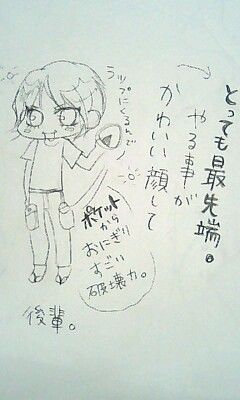 とっても最先端。
やる事が
かわいい顔して
ラップにくるんで
ポケット
から
おにぎり
すごい
破壊力。
後輩。